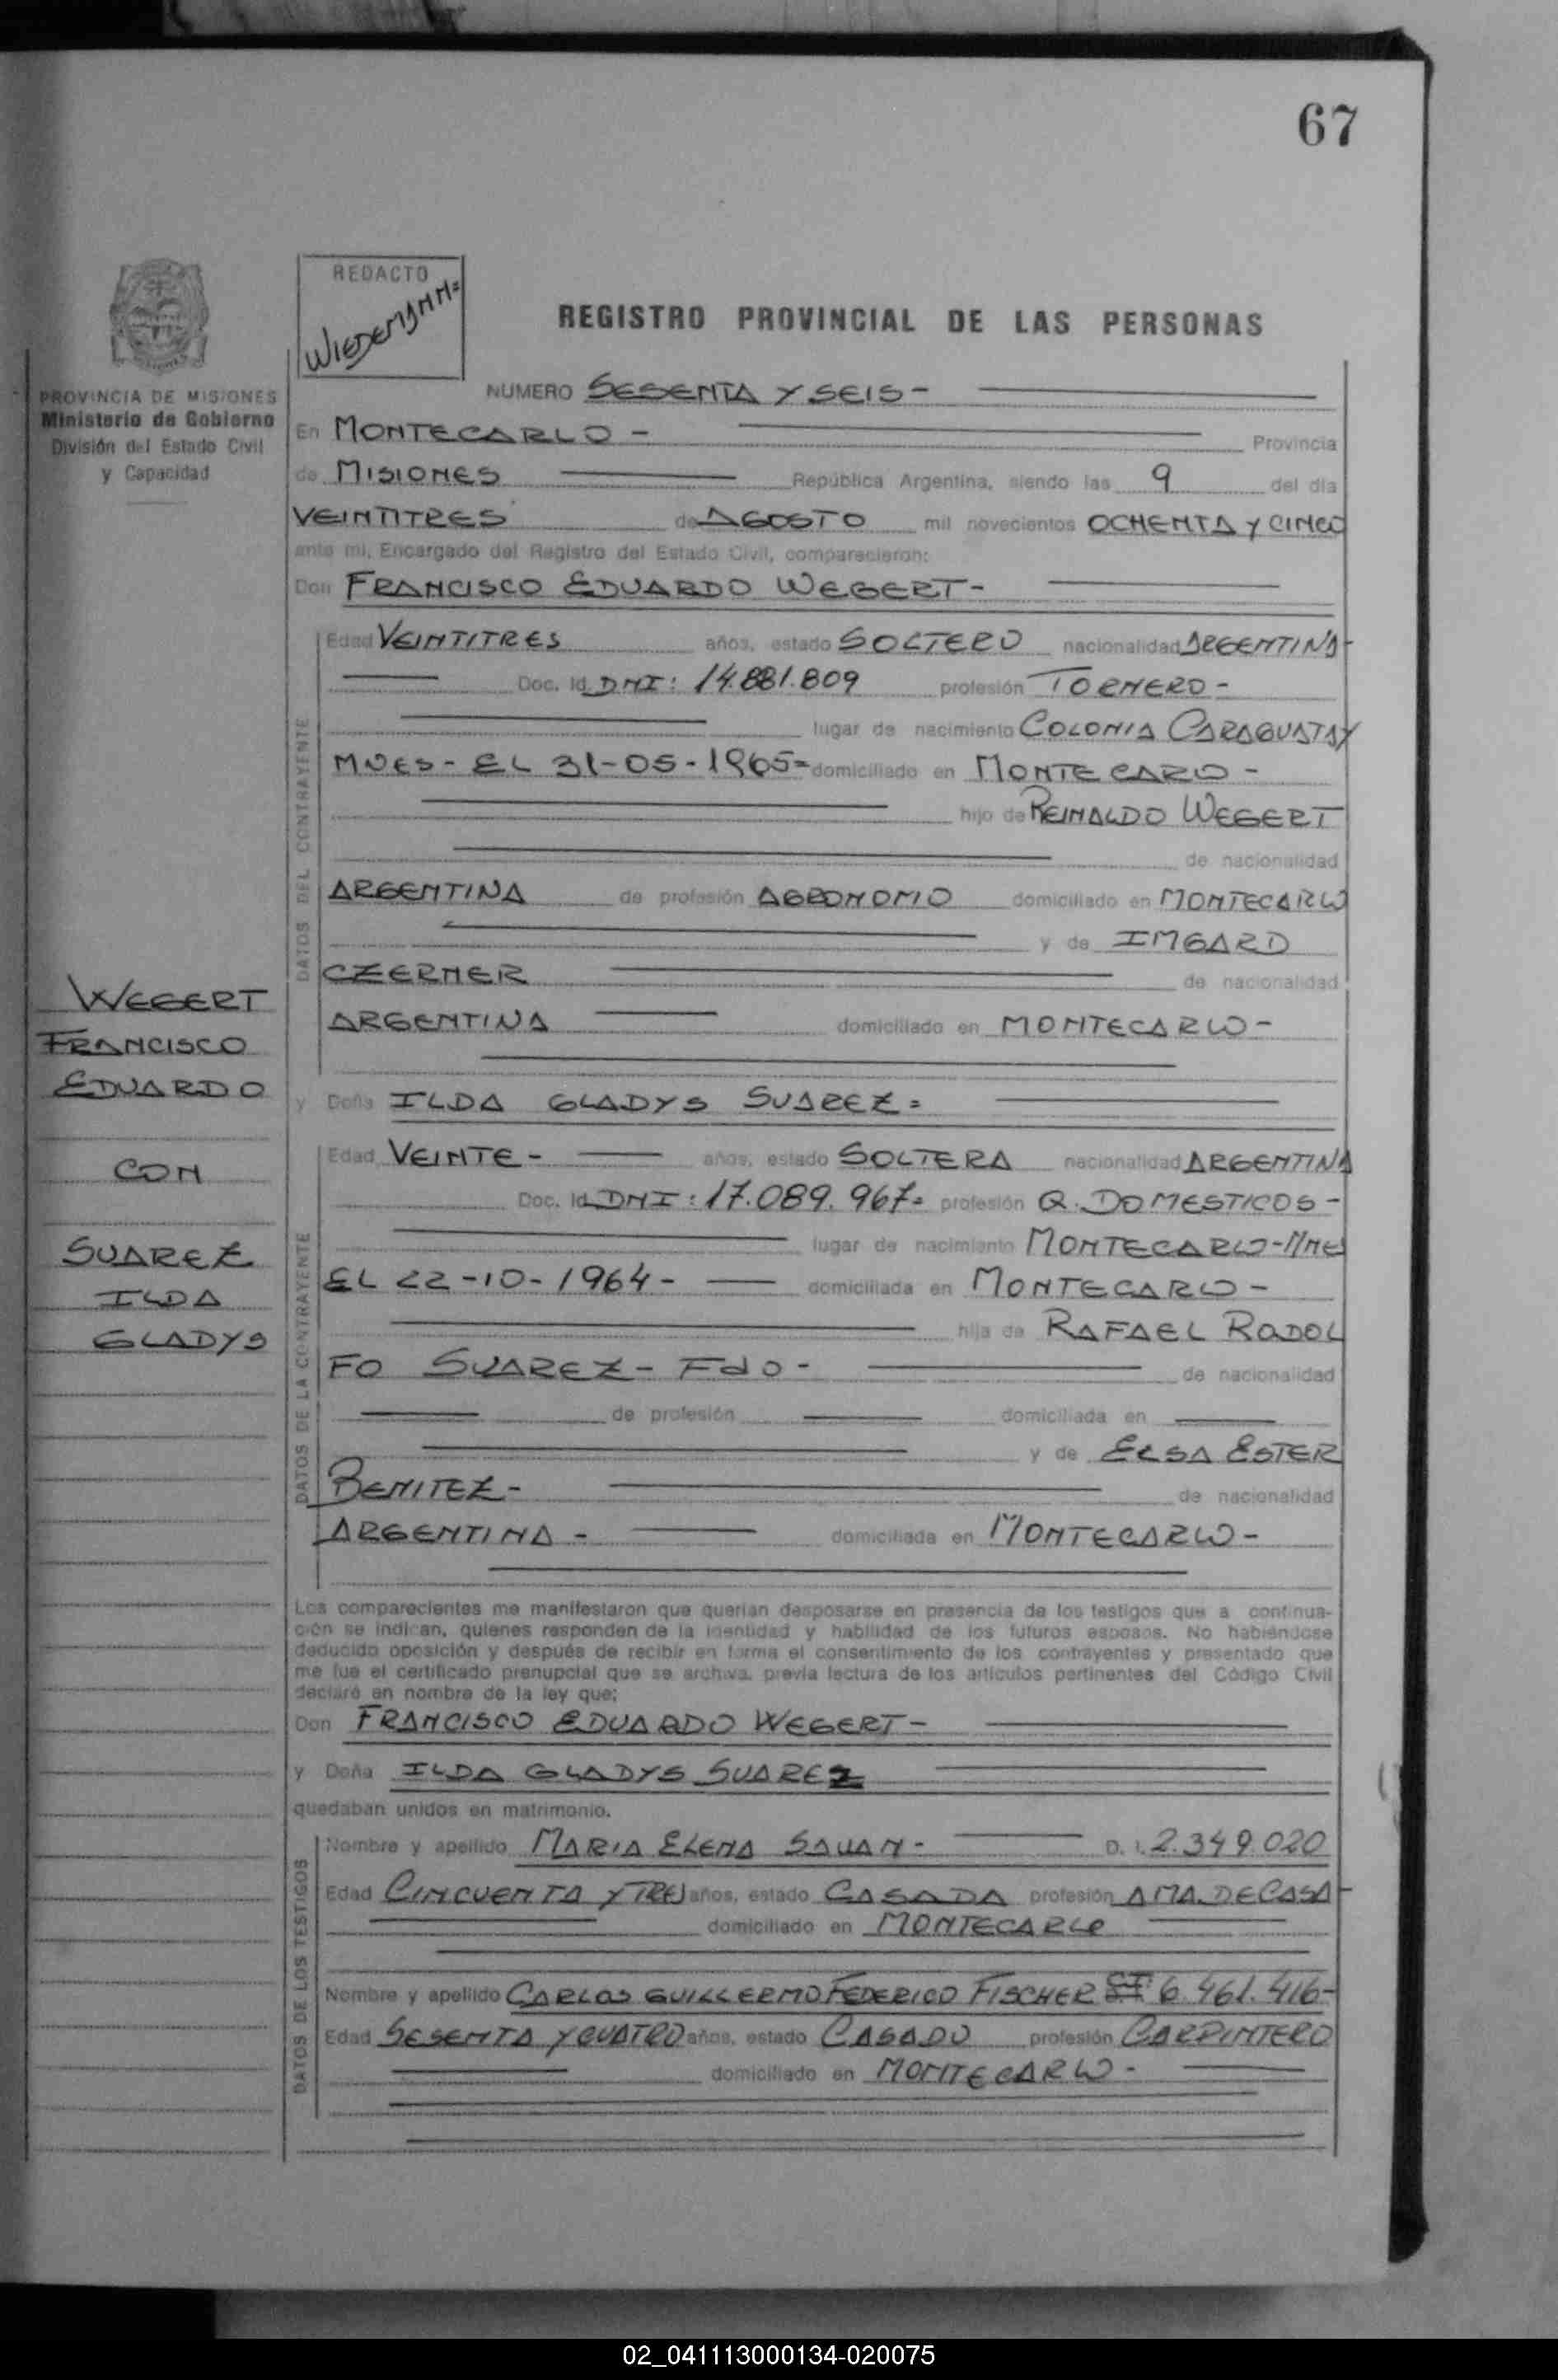 67
REDACTO
WIEDEMANN=
REGISTRO PROVINCIAL DE LAS PERSONAS
PROVINCIA DE MISIONES
Ministerio de Gobierno
División del Estado Civil
y Capacidad
NUMERO SESENTA Y SEIS -
En MONTECARLO - Provincia
de MISIONES República Argentina, siendo las 9 del día
VEINTITRES de AGOSTO mil novecientos OCHENTA Y CINCO
ante mi, Encargado del Registro del Estado Civil, comparecieron:
Don FRANCISCO EDUARDO WEGERT -
DATOS DEL CONTRAYENTE
Edad VEINTITRES años, estado SOLTERO nacionalidad ARGENTINA-
Doc. Id. DNI: 14.881.809 profesión TORNERO -
lugar de nacimiento COLONIA CARAGUATAY
MNES - EL 31-05-1965= domiciliado en MONTECARLO -
hijo de REINALDO WEGERT
de nacionalidad
ARGENTINA de profesión AGRONOMO domiciliado en MONTECARLO
y de IMGARD
CZERNER de nacionalidad
ARGENTINA domiciliado en MONTECARLO -
WEGERT
FRANCISCO
EDUARDO
CON
SUAREZ
ILDA
GLADYS
y Doña ILDA GLADYS SUAREZ =
DATOS DE LA CONTRAYENTE
Edad VEINTE - años, estado SOLTERA nacionalidad ARGENTINA
Doc. Id. DNI: 17.089.967= profesión Q. DOMESTICOS -
lugar de nacimiento MONTECARLO-MNES
EL 22-10-1964 - domiciliada en MONTECARLO -
hija de RAFAEL RODOL
FO SUAREZ - Fdo - de nacionalidad
de profesión domiciliada en
y de ELSA ESTER
BENITEZ - de nacionalidad
ARGENTINA - domiciliada en MONTECARLO -
Los comparecientes me manifestaron que querían desposarse en presencia de los testigos que a continua-
ción se indican, quienes responden de la identidad y habilidad de los futuros esposos. No habiéndose
deducido oposición y después de recibir en forma el consentimiento de los contrayentes y presentado que
me fue el certificado prenupcial que se archiva, previa lectura de los artículos pertinentes del Código Civil
declaré en nombre de la ley que:
Don FRANCISCO EDUARDO WEGERT -
y Doña ILDA GLADYS SUAREZ
quedaban unidos en matrimonio.
DATOS DE LOS TESTIGOS
Nombre y apellido MARIA ELENA D. I. 2.349.020
Edad CINCUENTA Y TRES años, estado CASADA profesión AMA DE CASA-
domiciliado en MONTECARLO
Nombre y apellido CARLOS GUILLERMO FEDERICO FISCHER 6.461.416-
Edad SESENTA Y CUATRO años, estado CASADO profesión CARPINTERO
domiciliado en MONTECARLO -
02_041113000134-020075